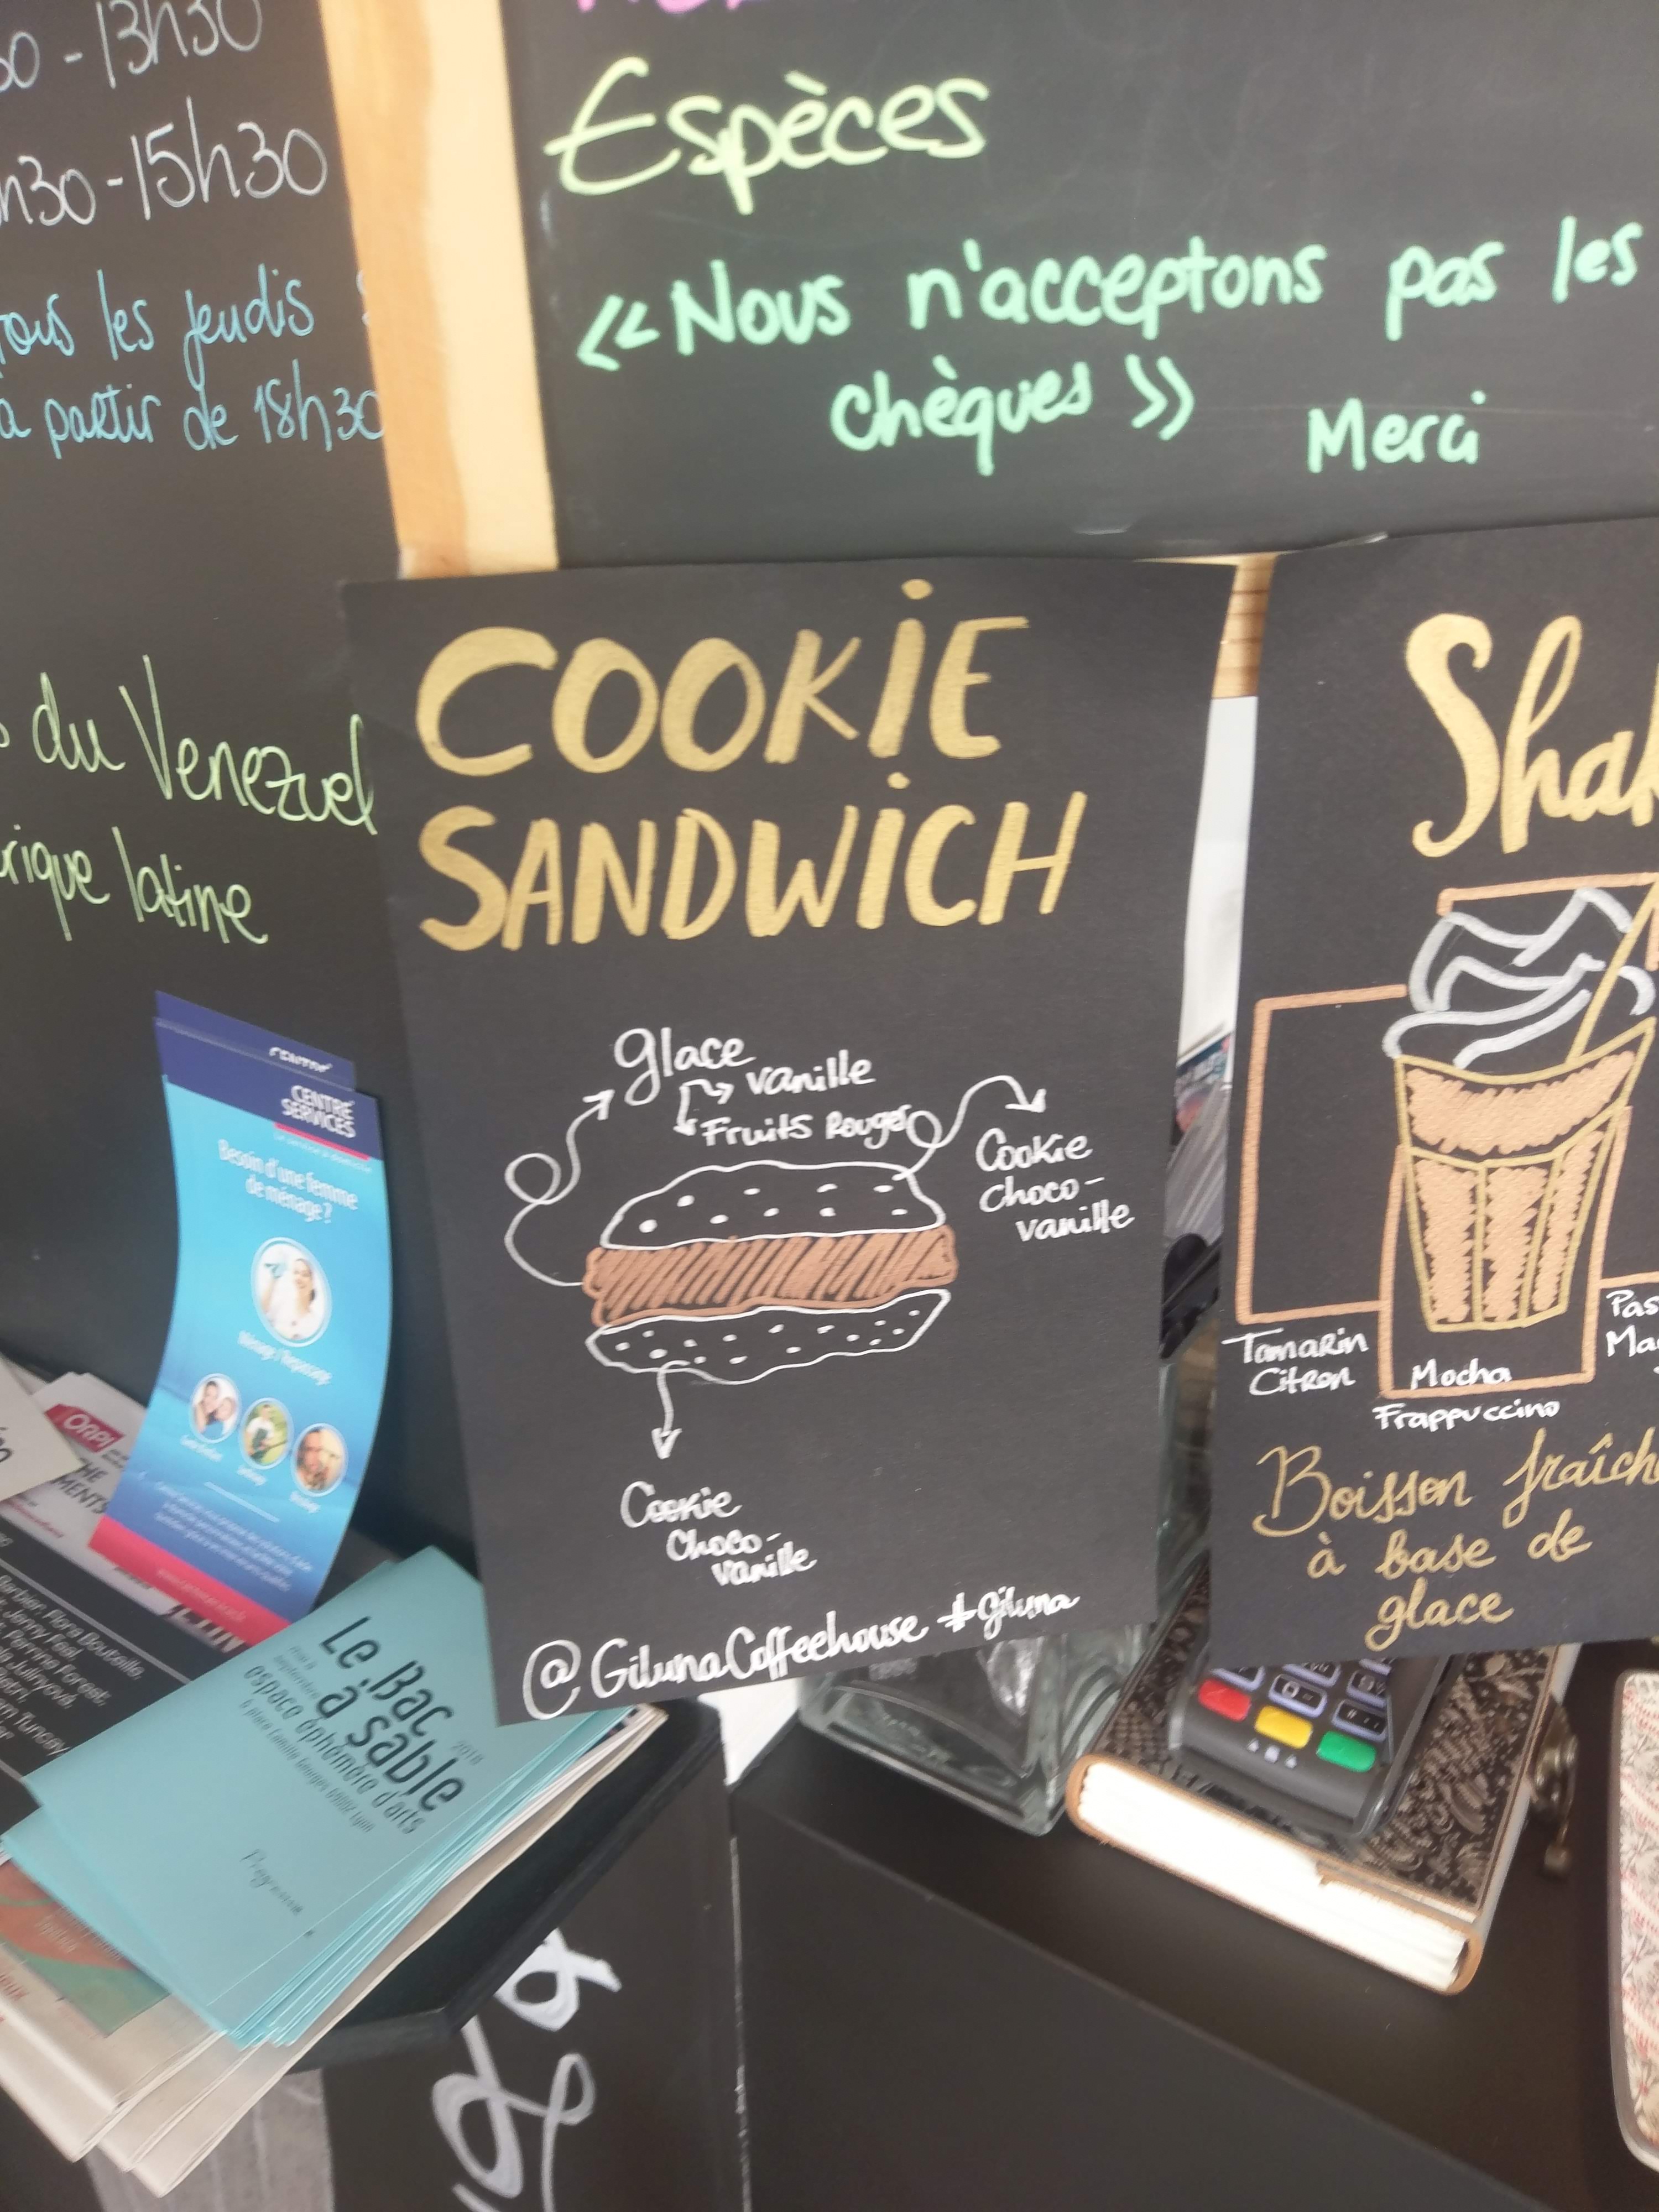 - 13h30
h30 - 15h30
les jeudis
à partir de 18h30
du Venezuel
latine
Espèces
<< Nous n'acceptons pas les
chèques >>
Merci
COOKIE
SANDWICH
glace
vanille
Fruits Rouges
Cookie
choco-
vanille
Cookie
Choco-
vanille
@GilunaCoffeehouse #giluna
Shak
Tamarin
Citron
Mocha
Frappuccino
Pas
Ma
Boisson fraîche
à base de
glace
CENTRE
SERVICES
Besoin d'une femme
de ménage?
Ménage / Repassage
ORPI
Le Bac
à sable
2018
espace éphémère d'arts
Programme